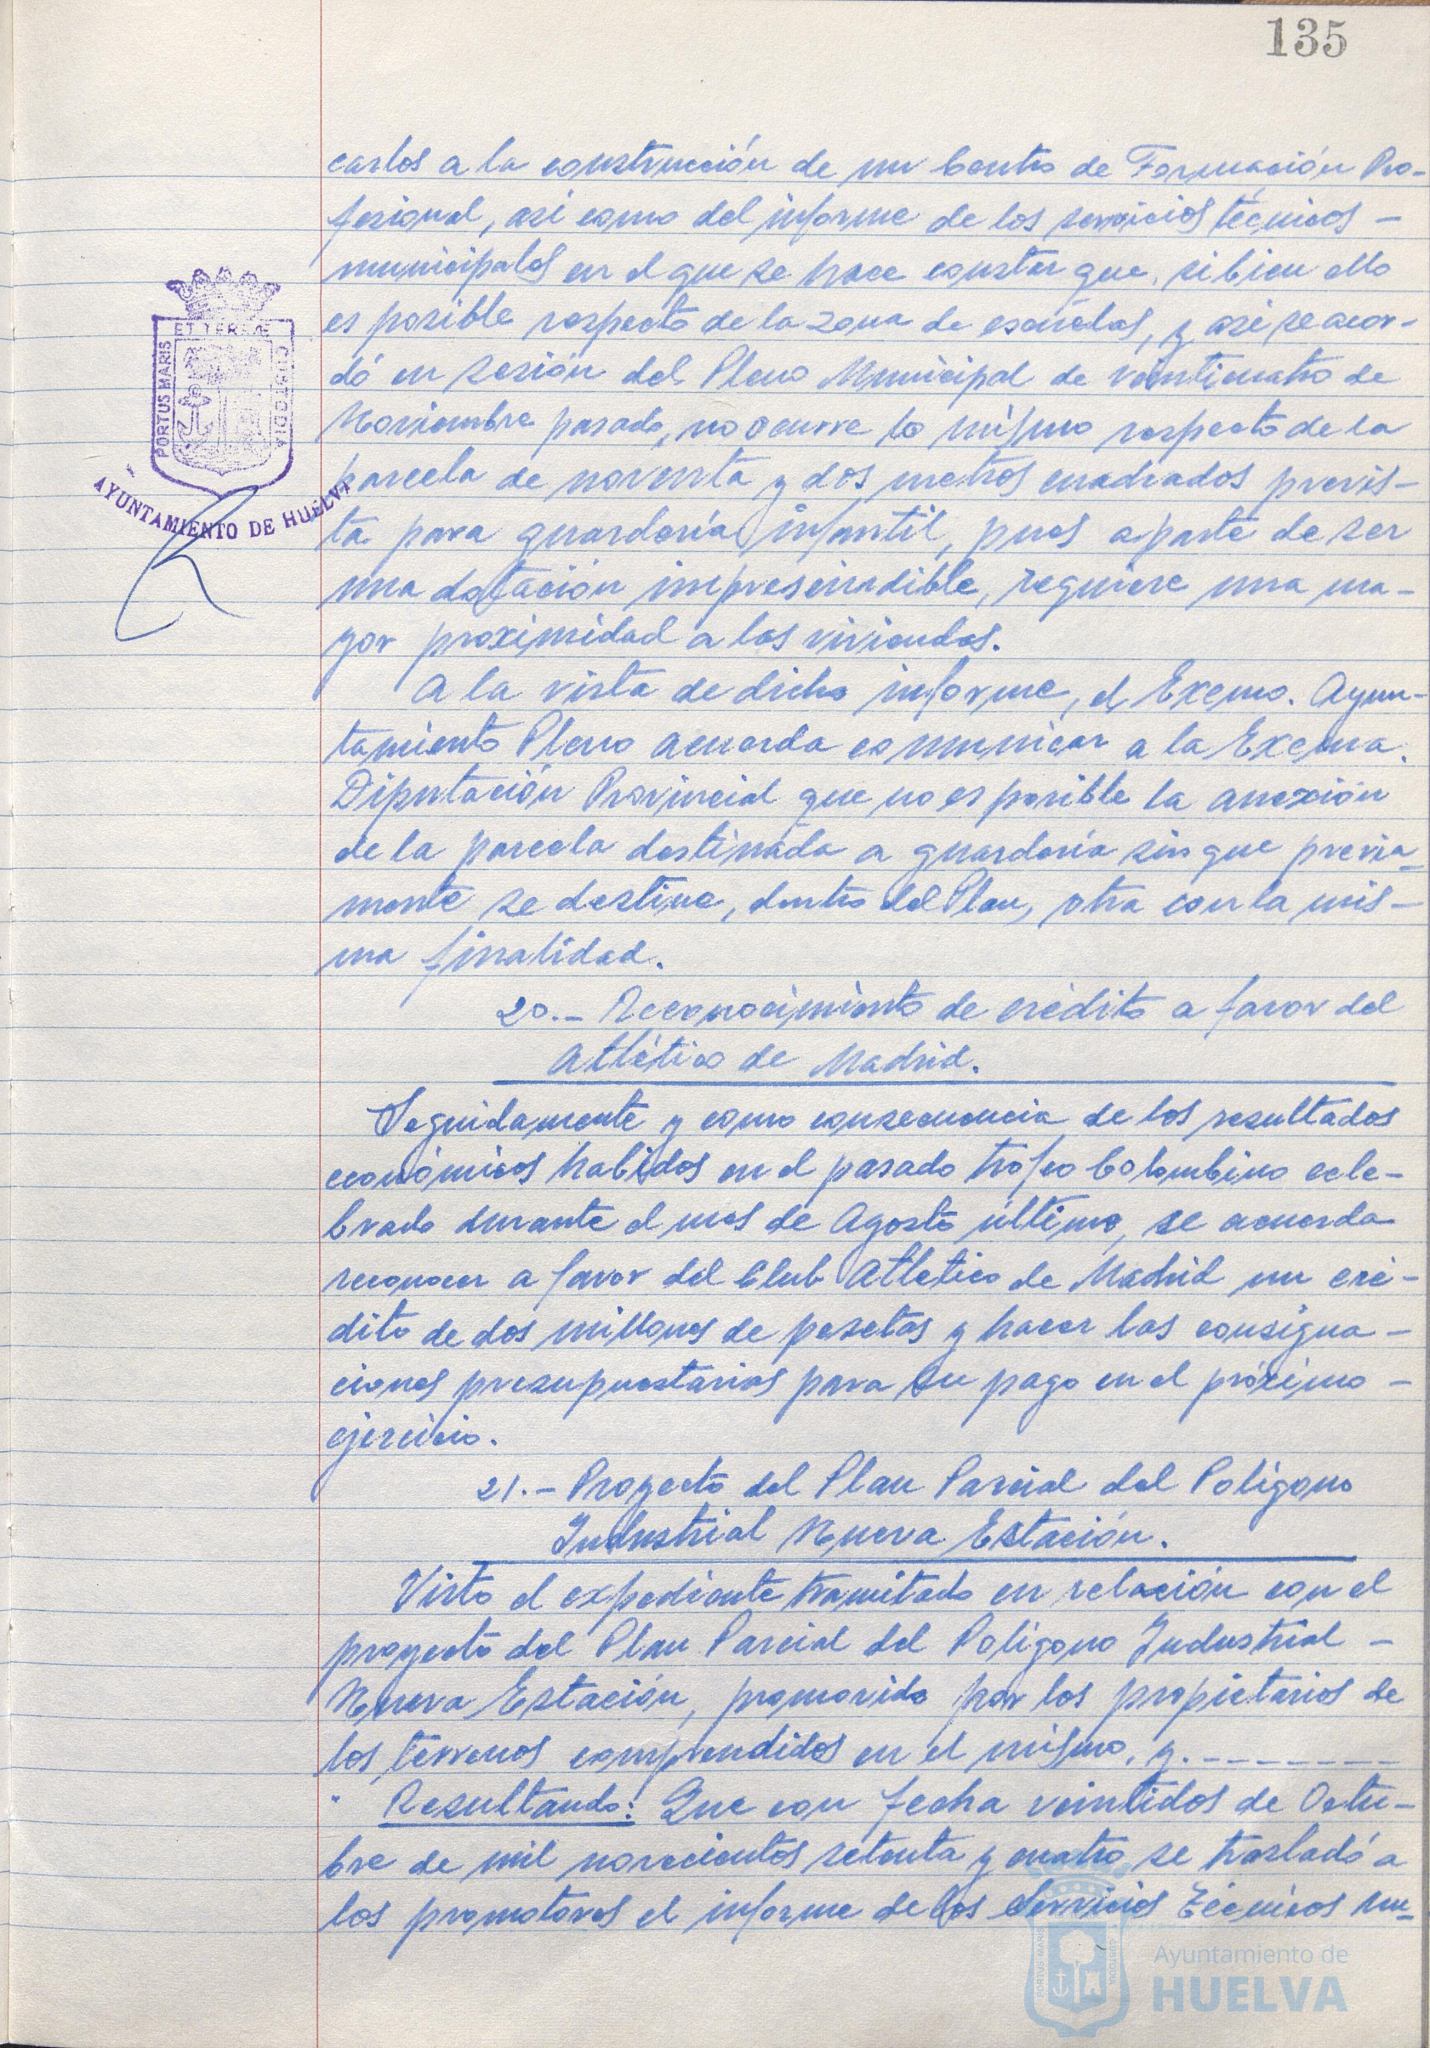 135
carlos a la construcción de un Centro de Formación Pro-
fesional, así como del informe de los servicios técnicos -
municipales en el que se hace constar que, si bien ello
es posible respecto de la zona de escuelas, y así se acor-
dó en sesión del Pleno Municipal de veinticuatro de
Noviembre pasado, no ocurre lo mismo respecto de la
parcela de noventa y dos metros cuadrados previs-
ta para guardería infantil, pues aparte de ser
una dotación impresindible, requiere una ma-
yor proximidad a las viviendas.
A la vista de dicho informe, el Excmo. Ayun-
tamiento Pleno acuerda comunicar a la Excma.
Diputación Provincial que no es posible la anexión
de la parcela destinada a guardería sin que previa-
mente se destine, dentro del Plan, otra con la mis-
ma finalidad.
20.- Reconocimiento de crédito a favor del
Atlético de Madrid.
Seguidamente y como consecuencia de los resultados
económicos habidos en el pasado trofeo Colombino cele-
brado durante el mes de Agosto último, se acuerda
reconocer a favor del Club Atlético de Madrid un cré-
dito de dos millones de pesetas y hacer las consigna-
ciones presupuestarias para su pago en el próximo -
ejercicio.
21.- Proyecto del Plan Parcial del Polígono
Industrial Nueva Estación.
Visto el expediente tramitado en relación con el
proyecto del Plan Parcial del Polígono Industrial -
Nueva Estación, promovido por los propietarios de
los terrenos comprendidos en el mismo, y.-------
" Resultando: Que con fecha veintidos de Octu-
bre de mil novecientos setenta y cuatro se trasladó a
los promotores el informe de los Servicios Técnicos mu-
PORTUS MARIS ET TERRÆ CUSTODIA
AYUNTAMIENTO DE HUELVA
PORTUS MARIS CUSTODIA
Ayuntamiento de
HUELVA